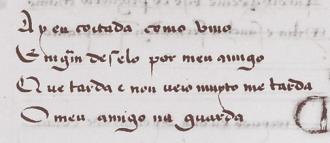 Ay eu coitada como viuo
E m gm deseio por meu amigo
Que tarda e non veio muyto me tarda
O meu amigo na guarda